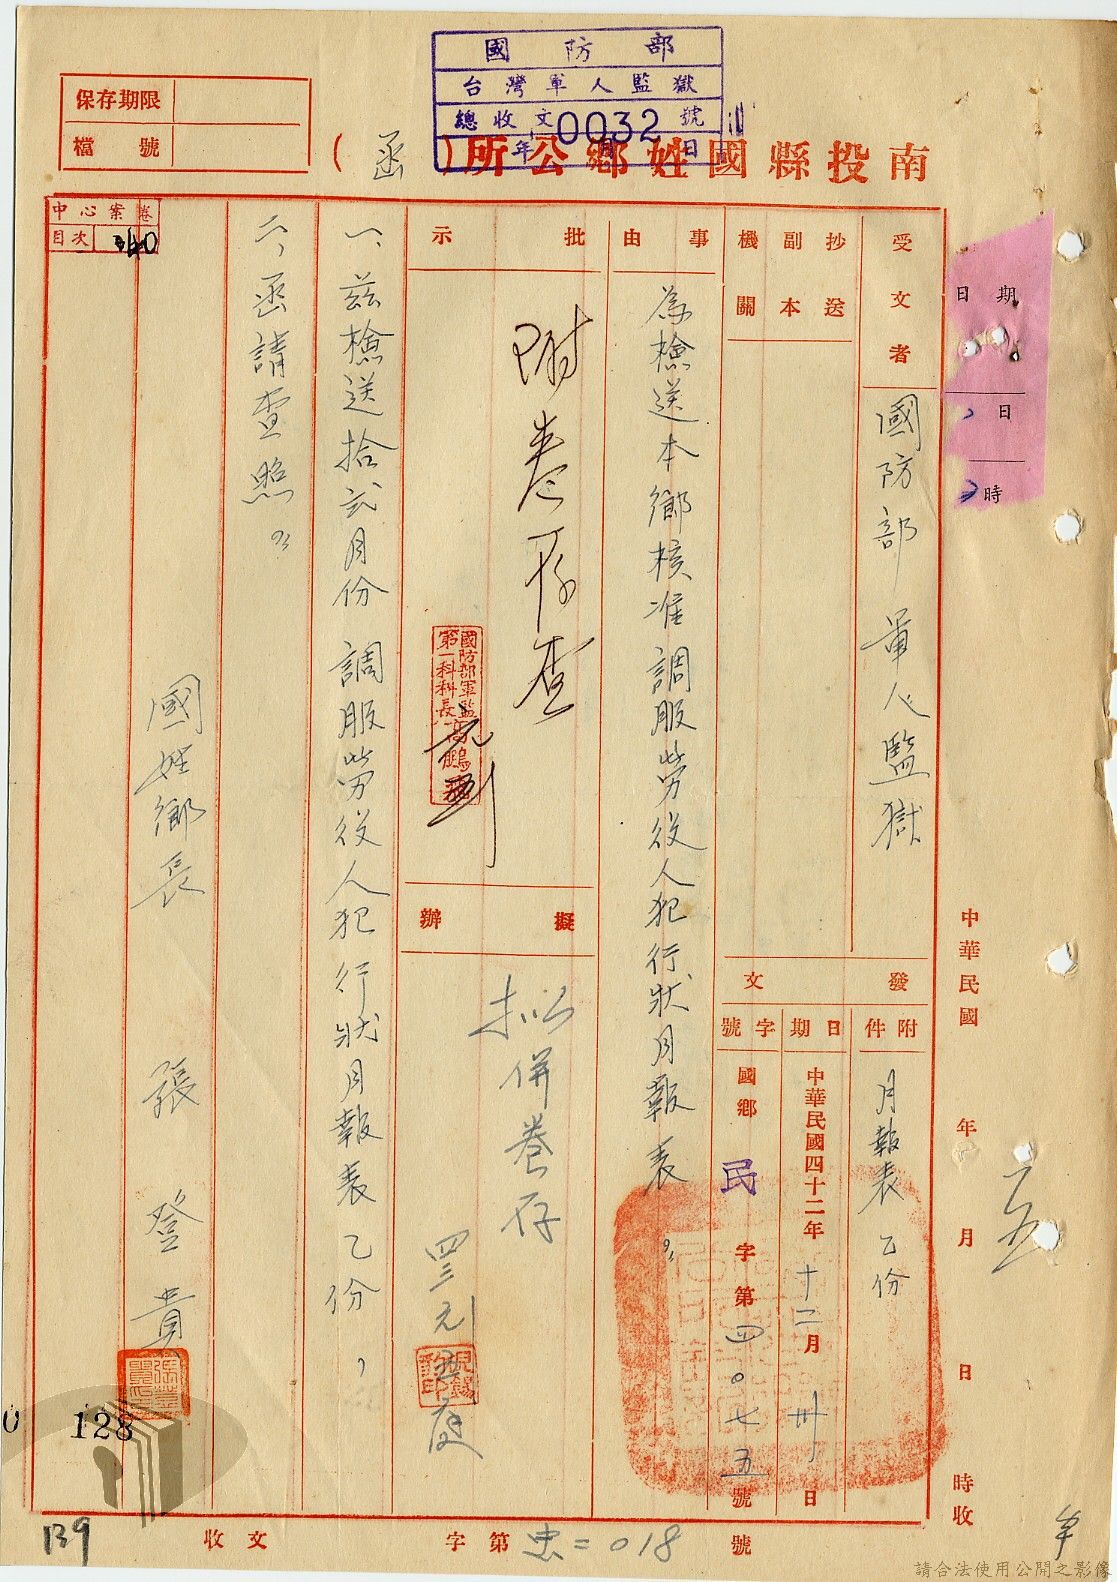 國防部
台灣軍人監獄
總收文 0032 號
年 月 日
保存期限
檔號
南投縣國姓鄉公所(函)
中心案卷
目次 340
受文者 國防部軍人監獄
抄送副本機關
事由 為檢送本鄉核准調服勞役人犯行狀月報表。
批示 附卷存查
國防部軍監
第一科科長
擬辦 擬併卷存
發文
附件 月報表乙份
日期 中華民國四十二年十二月卅日
字號 國鄉民字第四〇七五號
一、茲檢送拾弍月份調服勞役人犯行狀月報表乙份,
二、函請查照。
國姓鄉長 張登貴
期日
日
時
中華民國 年 月 日 時收
收文 字第 018 號
128
139
請合法使用公開之影像